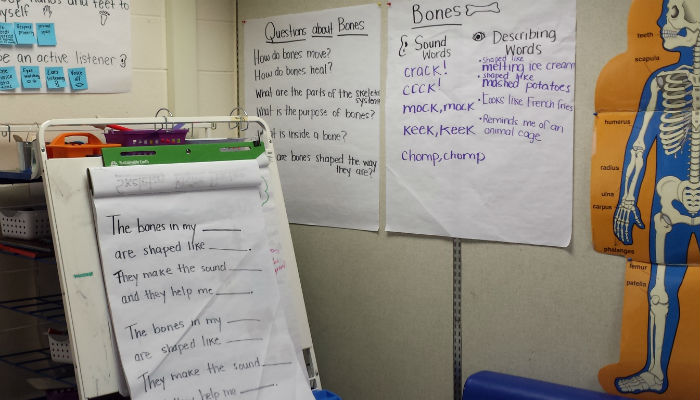 hands and feet to
yourself
be an active listener
Questions about Bones
How do bones move?
How do bones heal?
What are the parts of the skeletal
system
What is the purpose of bones?
is inside a bone?
are bones shaped the way
they are?
Bones
Sound
Words
crack!
CCCK!
mock, mock
keek, keek
chomp, chomp
Describing
Words
• shaped like
melting ice cream
• shaped like
mashed potatoes
• Looks like French fries
• Reminds me of an
animal cage
The bones in my
are shaped like
They make the sound
and they help me
The bones in my
are shaped like
They make the sound
they help me
teeth
scapula
humerus
radius
ulna
carpus
phalanges
femur
patella